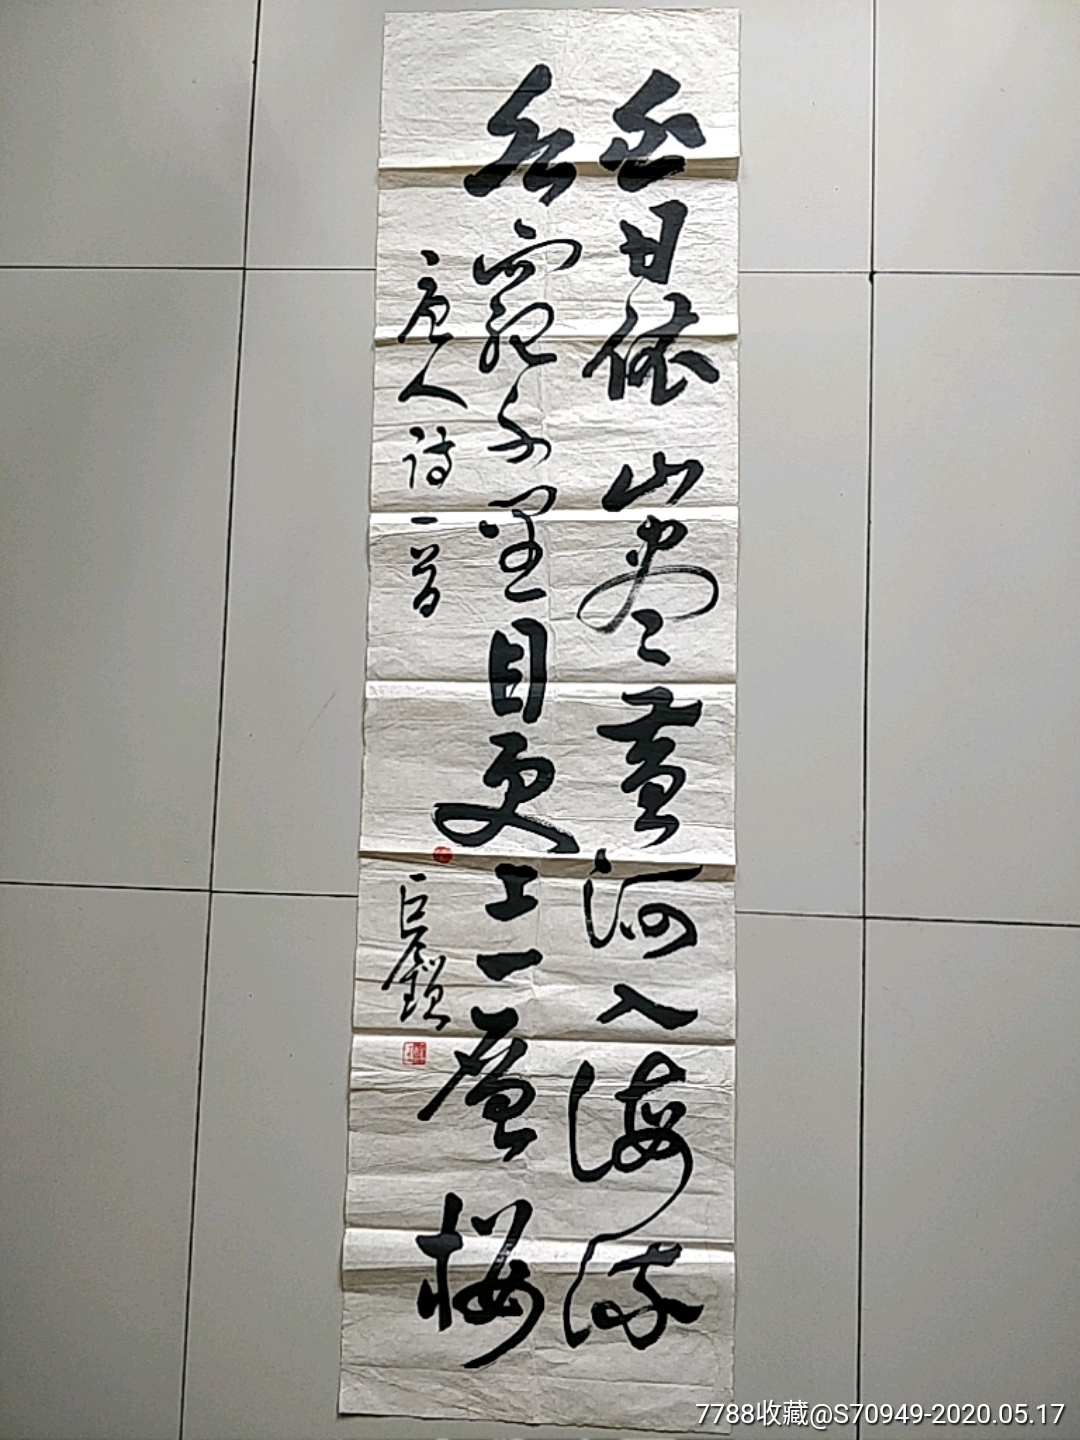 白日依山盡黃河入海流
欲窮千里目更上一層樓
唐人詩一首
巨鎖
7788收藏@S70949-2020.05.17